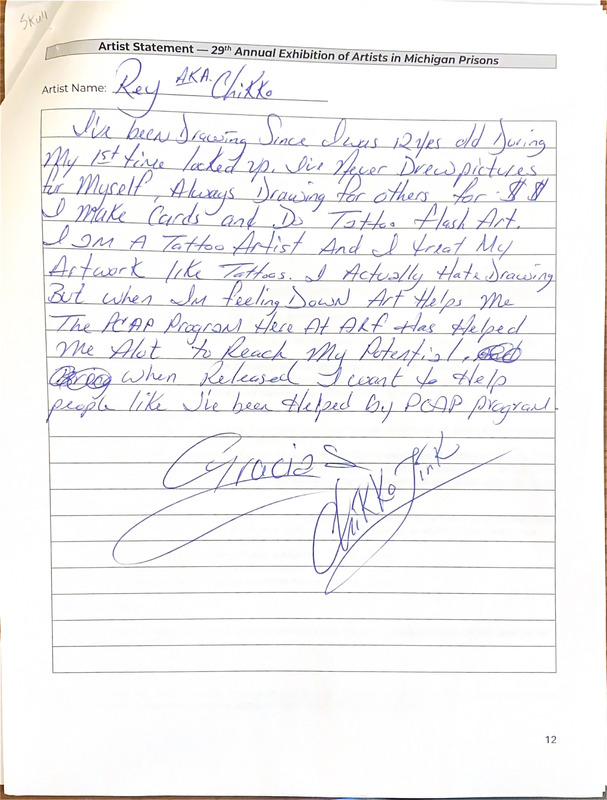 Skull
Artist Statement — 29th Annual Exhibition of Artists in Michigan Prisons
Artist Name: Rey AKA. Chikko
I've been Drawing Since I was 12 yes old During
My 1st time locked up. I've Never Drew pictures
for Myself, Always Drawing for others for $ $
I make Cards and Do Tattoo flash Art.
I am A Tattoo Artist And I treat My
Artwork like Tattoos. I Actually Hate Drawing
But when I'm feeling Down Art Helps Me
The PCAP Program Here At ARF Has Helped
me Alot to Reach My Potential,
when Released I want to Help
people like I've been Helped by PCAP program.
Gracias
Chikko Tink
12